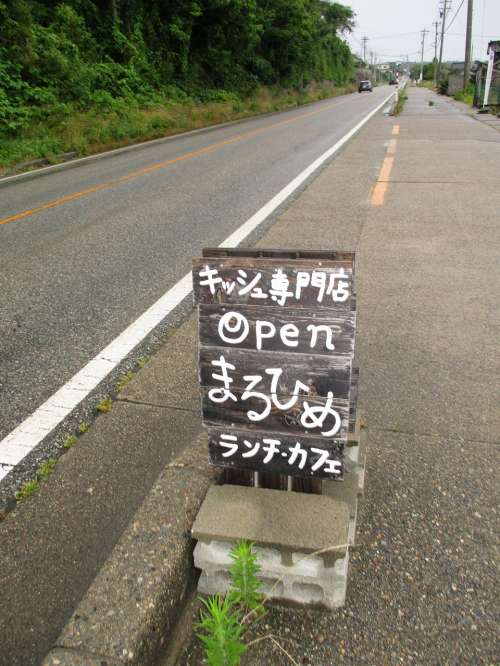 キッシュ専門店
Open
まるひめ
ランチ・カフェ